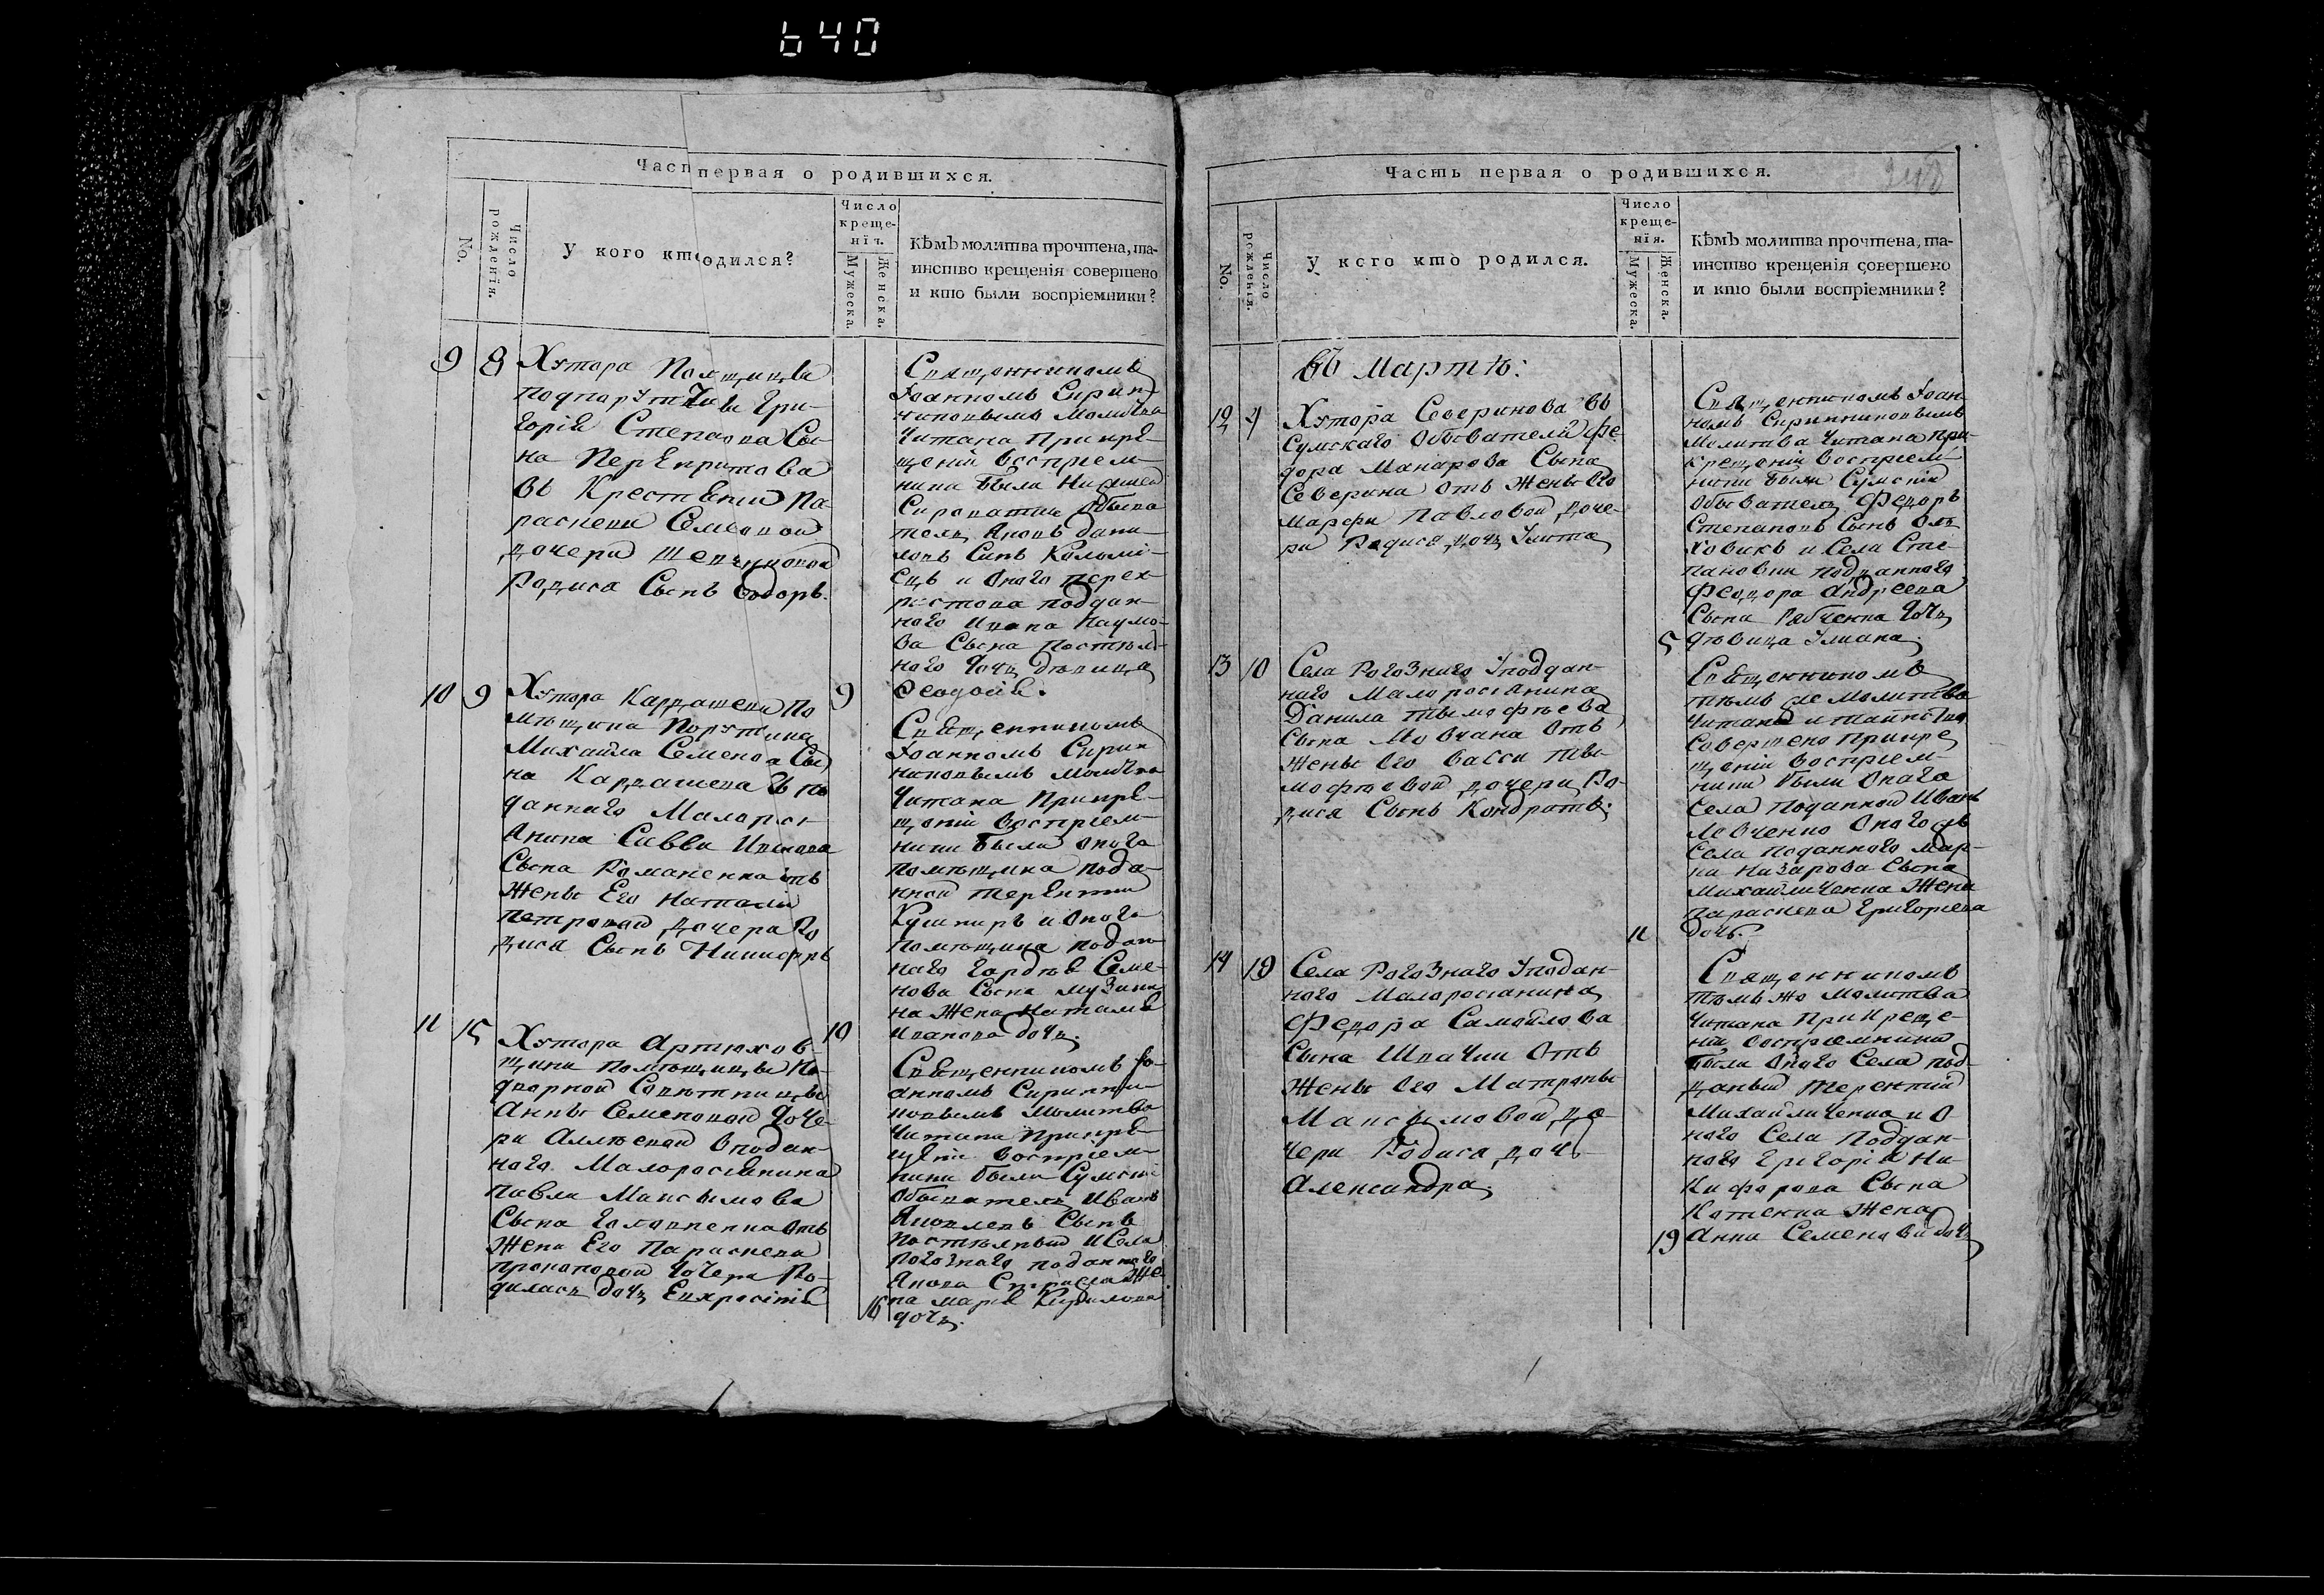 640
Часп первая о родившихся.
No.
Число рожденія.
У кого кто одился?
Число креще-нія.
Мужеска.
Женска.
КѣмЪ молитва прочтена, та-
инство крещенія совершено
и кто были воспріемники?
9 8
Хутора
Гри-
горія Степанова Сы-
на
въ
Па-
раскевы Семеновой
дочери
Родися Сынъ Федоръ.
9
Священникомъ
Іоанномъ Сирин-
никовымъ Молитва
Читана Прикре-
щеніи Воспріем-
ники Были Нижней
Сироватки Обыва
тель Яковъ Дани-
ловъ Синъ Коломі-
ецъ и Оного
поддан-
ного Ивана Наумо-
ва Сына
ного Дочь Дѣвица
Феодосія.
10 9
Хутора Кардашевки По
мѣщика Поручика
Михаила Семенова Сы
на Кардашева
даннаго Малорос
янина Саввы Иванова
Сына Романенка отъ
Жены Его Наталіи
Петровой Дочери Ро
дися Сынъ Никифоръ
10
Священникомъ
Іоанномъ Сирин
никовымъ Молитва
Читана Прикре-
щеніи Воспріем-
ники Были Оного
Помѣщика Подда-
нной Терентій
Кушниръ и Оного
Помѣщика поддан
наго Гордѣя Семе-
нова Сына
на Жена Наталія
Иванова дочь.
11 15
Хутора Артюхов-
щины Помѣщицы На-
дворной Совѣтницы
Анны Семеновой Доче-
ри
ного Малоросіянина
Павла Максымова
Сына
отъ
Жены Его Параскевы
Прокоповой Дочери Ро-
дилась дочь Евхросінія
16
Священникомъ Іо-
анномъ Сиринни-
ковымъ Молитва
Читана Прикре-
щеніи Воспріем-
ники были Сумскі
Обыватель Иванъ
Яковлевъ Сынъ
и Села
Рогознаго подданного
Якова
Же
на Марія Кирилова
дочь.
Часть первая о родившихся.
No.
Число рожденія.
У кого кто родился.
Число креще-нія.
Мужеска.
Женска.
КѣмЪ молитва прочтена, та-
инство крещенія совершено
и кто были воспріемники?
въ Мартѣ:
12 4
Хутора Северинова въ
Сумскаго Обывателя Фе-
дора Макарова Сына
Северина отъ Жены Его
Марфы Павловой доче-
ри Родися дочь Улита
5
Священникомъ Іоан
номъ Сиринниковымъ
Молитва Читана При-
крещеніи Воспріем
ники были Сумскій
Обыватель Федоръ
Степановъ Сынъ
и Села Сте-
пановки Подданного
Феодора Андреева
Сына Рябченка дочь
дѣвица Улиана.
13 10
Села Рогознаго Уподдан-
наго Малоросіянина
Данила Тымофѣева
Сына Мовчана Отъ
Жены Его Вассы Ты-
мофѣевой дочери Ро-
дися Сынъ Кондратъ.
11
Священникомъ
тѣмъ же Молитва
Читана и Таинство
Совершено Прикре
щеніи Воспріем-
ники были Оного
Села Подданной Иванъ
Мовченко Оного жъ
Села Подданного Мар-
ка Назарова Сына
Михайличенка Жена
Параскева Григориева
дочь.
14 19
Села Рогознаго Уподдан-
ного Малоросіанина
Федора Самойлова
Сына Шпачки Отъ
Жены Его Матроны
Максымовой до-
чери Родися дочь
Александра.
19
Священникомъ
тѣмъ же Молитва
Читана Прикреще-
ніи воспріемники
были Оного Села под-
даный Терентій
Михайличенко и О
ного Села Поддан-
ного Григорія Ни-
кифорова Сына
Котенка Жена
Анна Семенова дочь